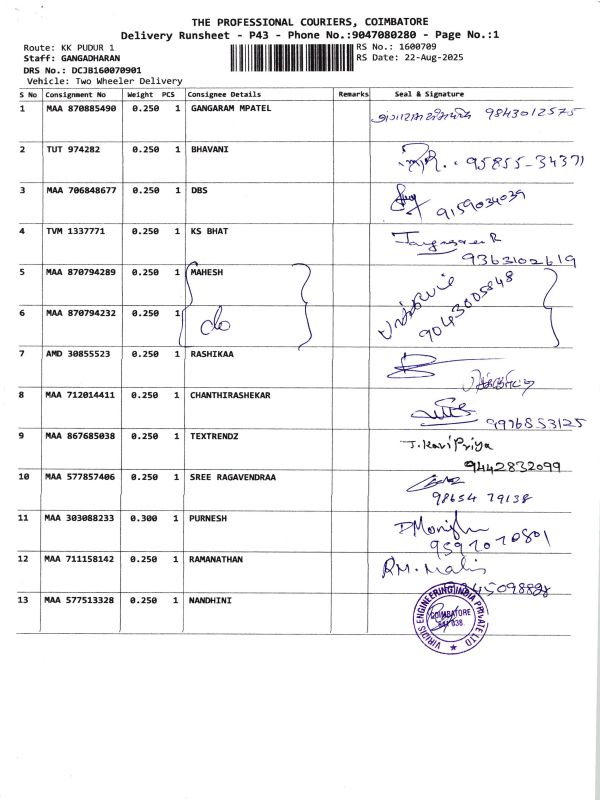 THE PROFESSIONAL COURIERS, COIMBATORE
Delivery Runsheet - P43 - Phone No.:9047080280 - Page No.:1
Route: KK PUDUR 1 RS No.: 1600709
Staff: GANGADHARAN RS Date: 22-Aug-2025
DRS No.: DCJB160070901
Vehicle: Two Wheeler Delivery
S No Consignment No Weight PCS Consignee Details Remarks Seal & Signature
1 MAA 870885490 0.250 1 GANGARAM MPATEL 9843012575
2 TUT 974282 0.250 1 BHAVANI 95855-34371
3 MAA 706848677 0.250 1 DBS 9159034039
4 TVM 1337771 0.250 1 KS BHAT
9363102619
5 MAA 870794289 0.250 1 MAHESH
6 MAA 870794232 0.250 1 do 9043005848
7 AMD 30855523 0.250 1 RASHIKAA
8 MAA 712014411 0.250 1 CHANTHIRASHEKAR
9976853125
9 MAA 867685038 0.250 1 TEXTRENDZ J. KaviPriya
9442832099
10 MAA 577857406 0.250 1 SREE RAGAVENDRAA
98654 79138
11 MAA 303088233 0.300 1 PURNESH
9597070801
12 MAA 711158142 0.250 1 RAMANATHAN RM. Malis
13 MAA 577513328 0.250 1 NANDHINI
VIRIDIS ENGINEERING INDIA PRIVATE LTD
COIMBATORE
641 038